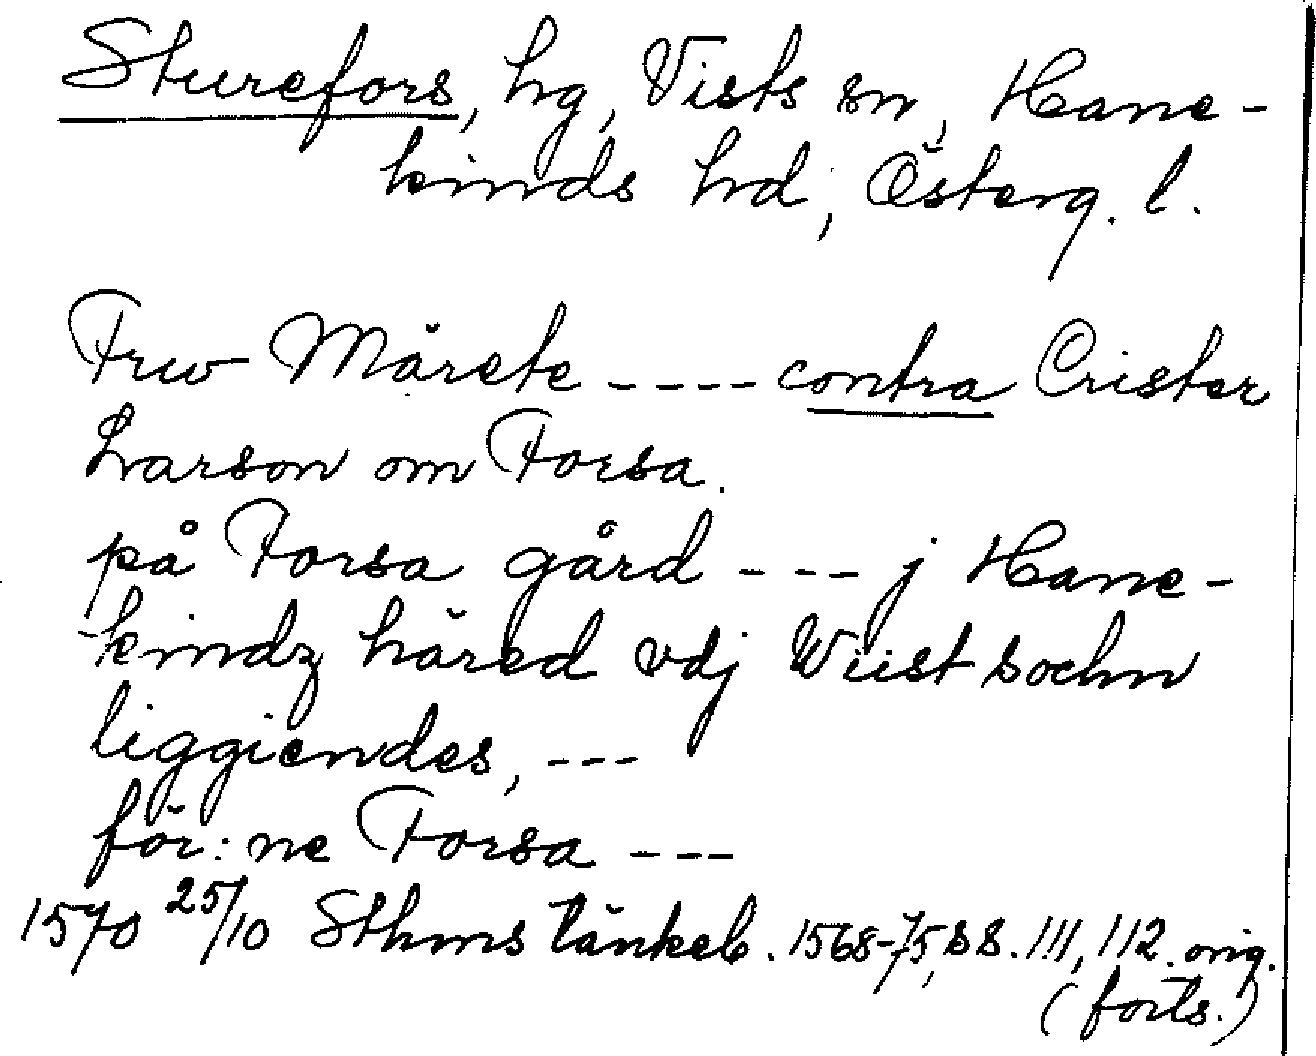 Sturefors, hg, Vists sn, Hane-
kinds hd, Österg. l.
Frw Märete ---- contra Crister
Larson om Forsa.
på Forsa gård --- j Hane-
kindz häred vdj Wiist sochn
liggiendes, ---
för:ne Forsa ---
1570 25/10 Sthms tänkeb. 1568-75, ss. 111, 112. orig.
(forts.)